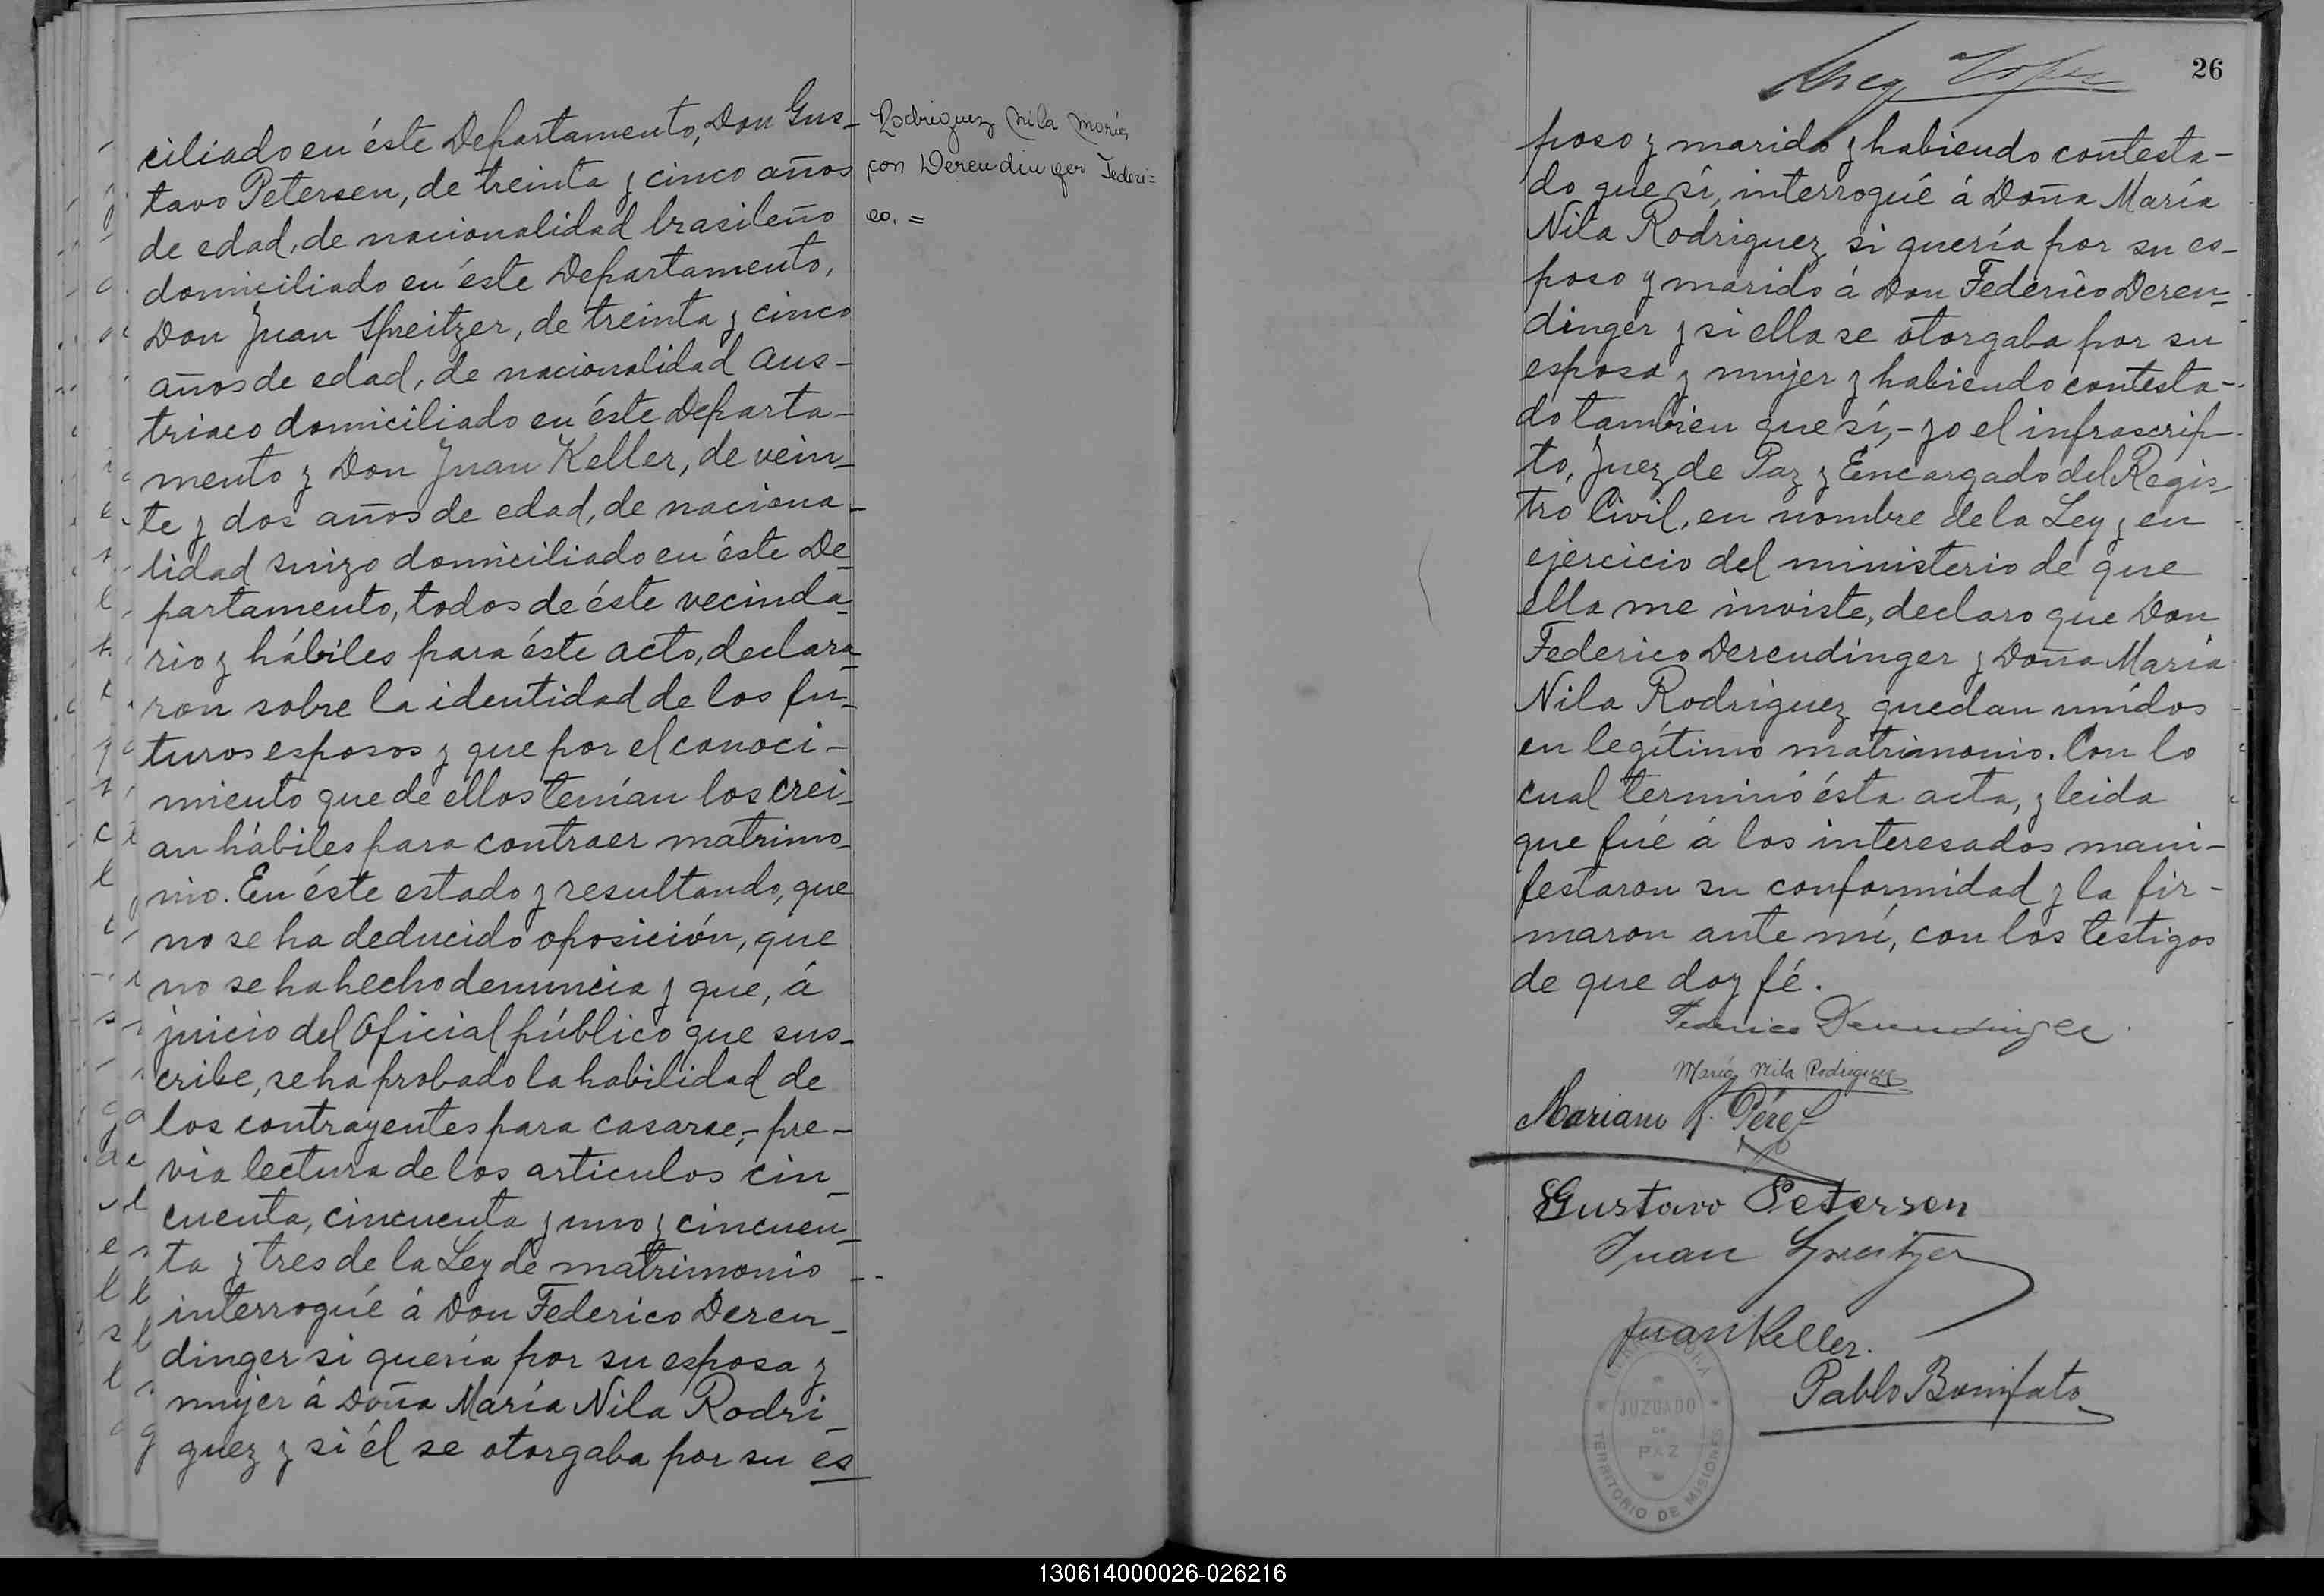 ciliado en éste Departamento, Don Gus-
tavo Petersen, de treinta y cinco años
de edad, de nacionalidad brasileño
domiciliado en éste Departamento,
Don Juan Spreitzer, de treinta y cinco
años de edad, de nacionalidad aus-
triaco domiciliado en éste Departa-
mento y Don Juan Keller, de vein-
te y dos años de edad, de naciona-
lidad suizo domiciliado en éste De-
partamento, todos de éste vecinda-
rio y hábiles para éste acto, declara-
ron sobre la identidad de los fu-
turos esposos y que por el conoci-
miento que de ellos tenían los crei-
an hábiles para contraer matrimo-
nio. En éste estado y resultando, que
no se ha deducido oposición, que
no se ha hecho denuncia y que, á
juicio del Oficial público que sus-
cribe, se ha probado la habilidad de
los contrayentes para casarse,- pre-
via lectura de los articulos cin-
cuenta, cincuenta y uno y cincuen-
ta y tres de la Ley de matrimonio --
interrogué á Don Federico Deren-
dinger si quería por su esposa y
mujer á Doña María Nila Rodri-
guez y si él se otorgaba por su es
Rodriguez Nila María
con Derendinger Federi=
co. =
26
poso y marido y habiendo contesta-
do que sí, interrogué á Doña María
Nila Rodriguez si quería por su es-
poso y marido á Don Federico Deren-
dinger y si ella se otorgaba por su
esposa y mujer y habiendo contesta-
do tambien que sí,- yo el infrascrip-
to, Juez de Paz y Encargado del Regis-
tro Civil, en nombre de la Ley y en
ejercicio del ministerio de que
ella me inviste, declaro que Don
Federico Derendinger y Doña María
Nila Rodriguez quedan unídos
en legítimo matrimonio. Con lo
cual terminó ésta acta, y leida
que fué á los interesados mani-
festaron su conformidad y la fir-
maron ante mí, con los testigos
de que doy fé.
Federico Derendinger
María Nila Rodriguez
Mariano R. Pérez
Gustavo Petersen
Juan Spreitzer
Juan Keller.
Pablo Bonifato
JUZGADO
DE
PAZ
TERRITORIO DE MISIONES
130614000026-026216